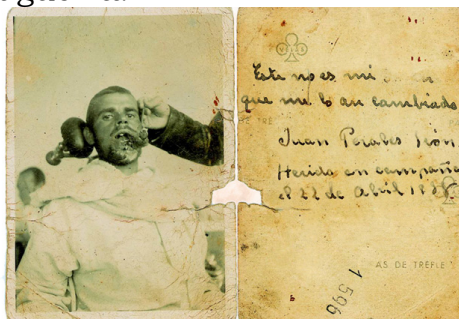 Este no es mi
que me lo an cambiado
Juan Perales León
Herido en campaña
el 22 de Abril 1938
AS DE TREFLE
1596